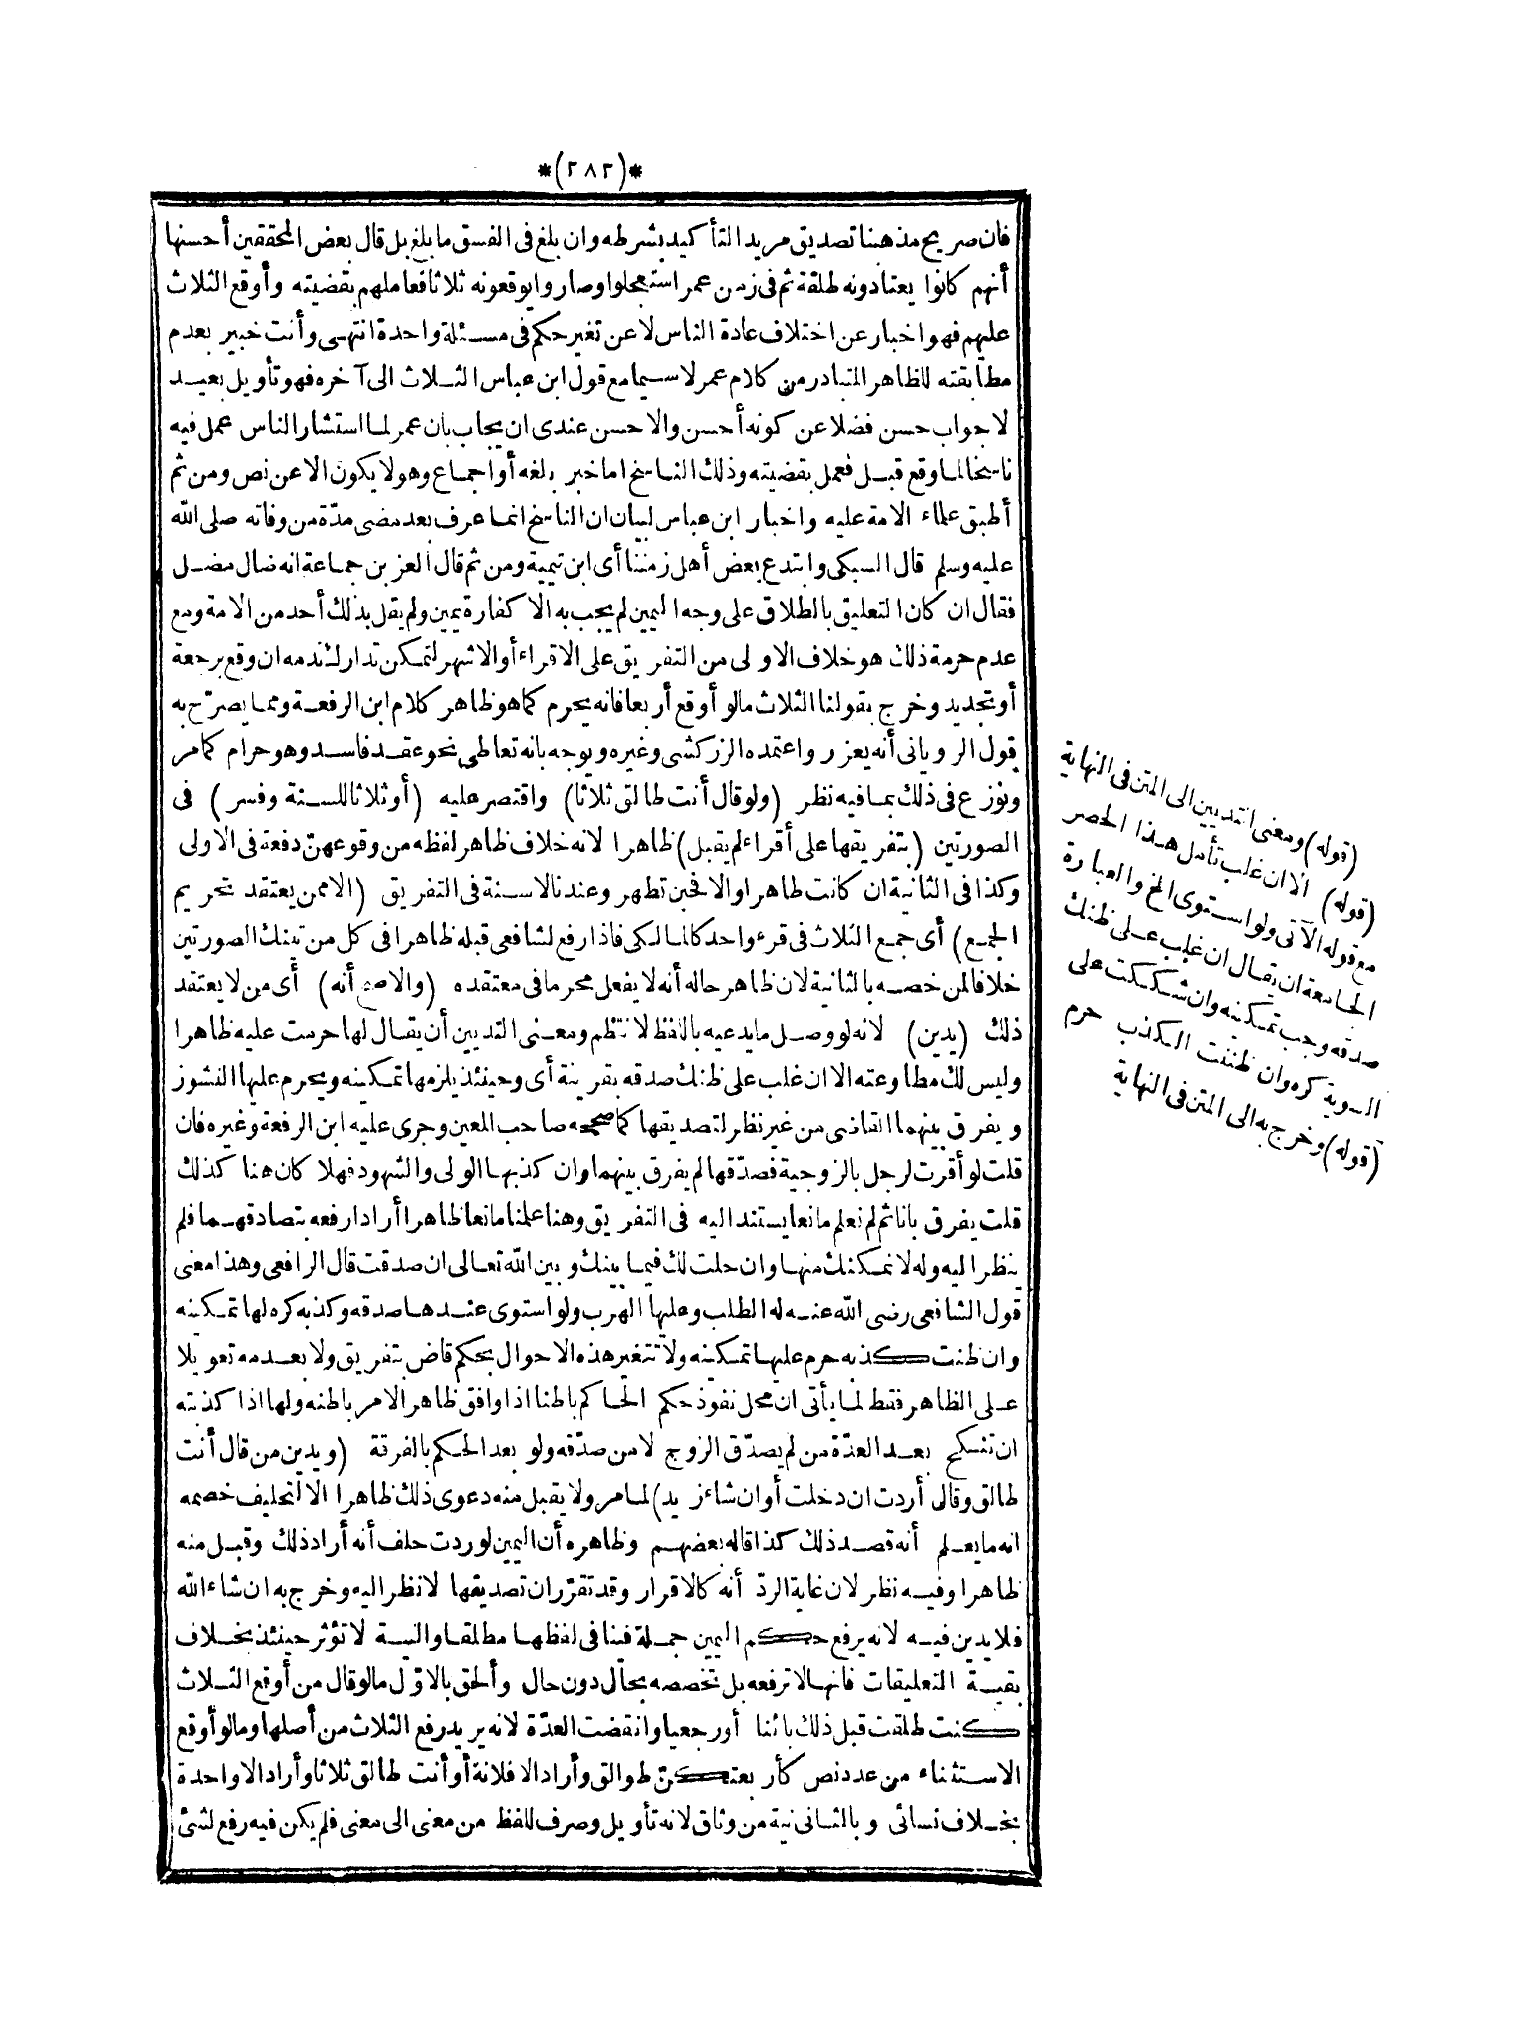 *(٢٨٢)*
فان صريح مذهبنا تصديق مريد التأكيد بشرطه وان بلغ فى الفسق ما بلغ بل قال بعض المحققين أحسنها
أنهم كانوا يعتادونه طلقة ثم فى زمن عمر استعجلوا وصاروا يوقعونه ثلاثا فعاملهم بقضيته وأوقع الثلاث
عليهم فهو اخبار عن اختلاف عادة الناس لا عن تغير حكم فى مسئلة واحدة انتهى وأنت خبير بعدم
مطابقته للظاهر المتبادر من كلام عمر لا سيما مع قول ابن عباس الثلاث الى آخره فهو تأويل بعيد
لا جواب حسن فضلا عن كونه أحسن والاحسن عندى ان يجاب بأن عمر لما استشار الناس عمل فيه
ناسخا لما وقع قبل فعمل بقضيته وذلك الناسخ اما خبر بلغه أو اجماع وهو لا يكون الا عن نص ومن ثم
أطبق علماء الامة عليه واخبار ابن عباس لبيان ان الناسخ انما عرف بعد مضى مدّة من وفاته صلى الله
عليه وسلم قال السبكى وابتدع بعض أهل زمننا أى ابن تيمية ومن ثم قال العز بن جماعة انه ضال مضل
فقال ان كان التعليق بالطلاق على وجه اليمين لم يجب به الا كفارة يمين ولم يقل بذلك أحد من الامة ومع
عدم حرمة ذلك هو خلاف الاولى من التفريق على الاقراء أو الاشهر لتمكن تدارك ندمه ان وقع برجعة
أو تجديد وخرج بقولنا الثلاث مالو أوقع أربعا فانه يحرم كما هو ظاهر كلام ابن الرفعة ومما يصرّح به
قول الرويانى أنه يعزر واعتمده الزركشى وغيره ويوجه بانه تعاطى نحو عقد فاسد وهو حرام كما مر
ونوزع فى ذلك بما فيه نظر (ولو قال أنت طالق ثلاثا) واقتصر عليه (أو ثلاثا للسنة وفسر) فى
الصورتين (بتفريقها على أقراء لم يقبل) ظاهرا لانه خلاف ظاهر لفظه من وقوعهنّ دفعة فى الاولى
وكذا فى الثانية ان كانت طاهرا والا فحين تطهر وعندنا لا سنة فى التفريق (الا ممن يعتقد تحريم
الجمع) أى جمع الثلاث فى قرء واحد كالمالكى فاذا رفع لشافعى قبله ظاهرا فى كل من تينك الصورتين
خلافا لمن خصه بالثانية لان ظاهر حاله أنه لا يفعل محرما فى معتقده (والاصح أنه) أى من لا يعتقد
ذلك (يدين) لانه لو وصل ما يدعيه باللفظ لانتظم ومعنى التديين أن يقال لها حرمت عليه ظاهرا
وليس لك مطاوعته الا ان غلب على ظنك صدقه بقرينة أى وحينئذ يلزمها تمكينه ويحرم عليها النشوز
ويفرق بينهما القاضى من غير نظر لتصديقها كما صححه صاحب المعين وجرى عليه ابن الرفعة وغيره فان
قلت لو أقرت لرجل بالزوجية فصدّقها لم يفرق بينهما وان كذبها الولى والشهود فهلا كان هنا كذلك
قلت يفرق بانا ثم لم نعلم مانعا يستند اليه فى التفريق وهنا علمنا مانعا ظاهرا أرادا رفعه بتصادقهما فلم
ينظر اليه وله لا نمكنك منها وان حلت لك فيما بينك وبين الله تعالى ان صدقت قال الرافعى وهذا معنى
قول الشافعى رضى الله عنه له الطلب وعليها الهرب ولو استوى عندها صدقه وكذبه كره لها تمكينه
وان ظنت كذبه حرم عليها تمكينه ولا تتغير هذه الاحوال بحكم قاض بتفريق ولا بعدمه تعويلا
على الظاهر فقط لما يأتى ان محل نفوذ حكم الحاكم باطنا اذا وافق ظاهر الامر باطنه ولها اذا كذبته
ان تنكح بعد العدّة من لم يصدّق الزوج لا من صدّقه ولو بعد الحكم بالفرقة (ويدين من قال أنت
طالق وقال أردت ان دخلت أو ان شاء زيد) لما مر ولا يقبل منه دعوى ذلك ظاهرا الا لتحليف خصمه
انه ما يعلم أنه قصد ذلك كذا قاله بعضهم وظاهره أن اليمين لو ردت حلف أنه أراد ذلك وقبل منه
ظاهرا وفيه نظر لان غاية الردّ أنه كالاقرار وقد تقرّر ان تصديقها لا نظر اليه وخرج به ان شاء الله
فلا يدين فيه لانه يرفع حكم اليمين جملة فينافى لفظها مطلقا والنية لا تؤثر حينئذ بخلاف
بقية التعليقات فانها لا ترفعه بل تخصصه بحال دون حال وألحق بالاوّل مالو قال من أوقع الثلاث
كنت طلقت قبل ذلك بائنا أو رجعيا وانقضت العدّة لانه يريد رفع الثلاث من أصلها ومالو أوقع
الاستثناء من عدد نص كأربعتكنّ طوالق وأراد الا فلانة أو أنت طالق ثلاثا وأراد الا واحدة
بخلاف نسائى وبالثانى نية من وثاق لانه تأويل وصرف للفظ من معنى الى معنى فلم يكن فيه رفع لشئ
(قوله) ومعنى التديين الى المتن فى النهاية
(قوله) الا ان غلب تأمل هذا الحصر
مع قوله الآتى ولو استوى الخ والعبارة
الجامعة ان يقال ان غلب على ظنك
صدقه وجب تمكينه وان شككت على
السوية كره وان ظننت الكذب حرم
(قوله) وخرج به الى المتن فى النهاية